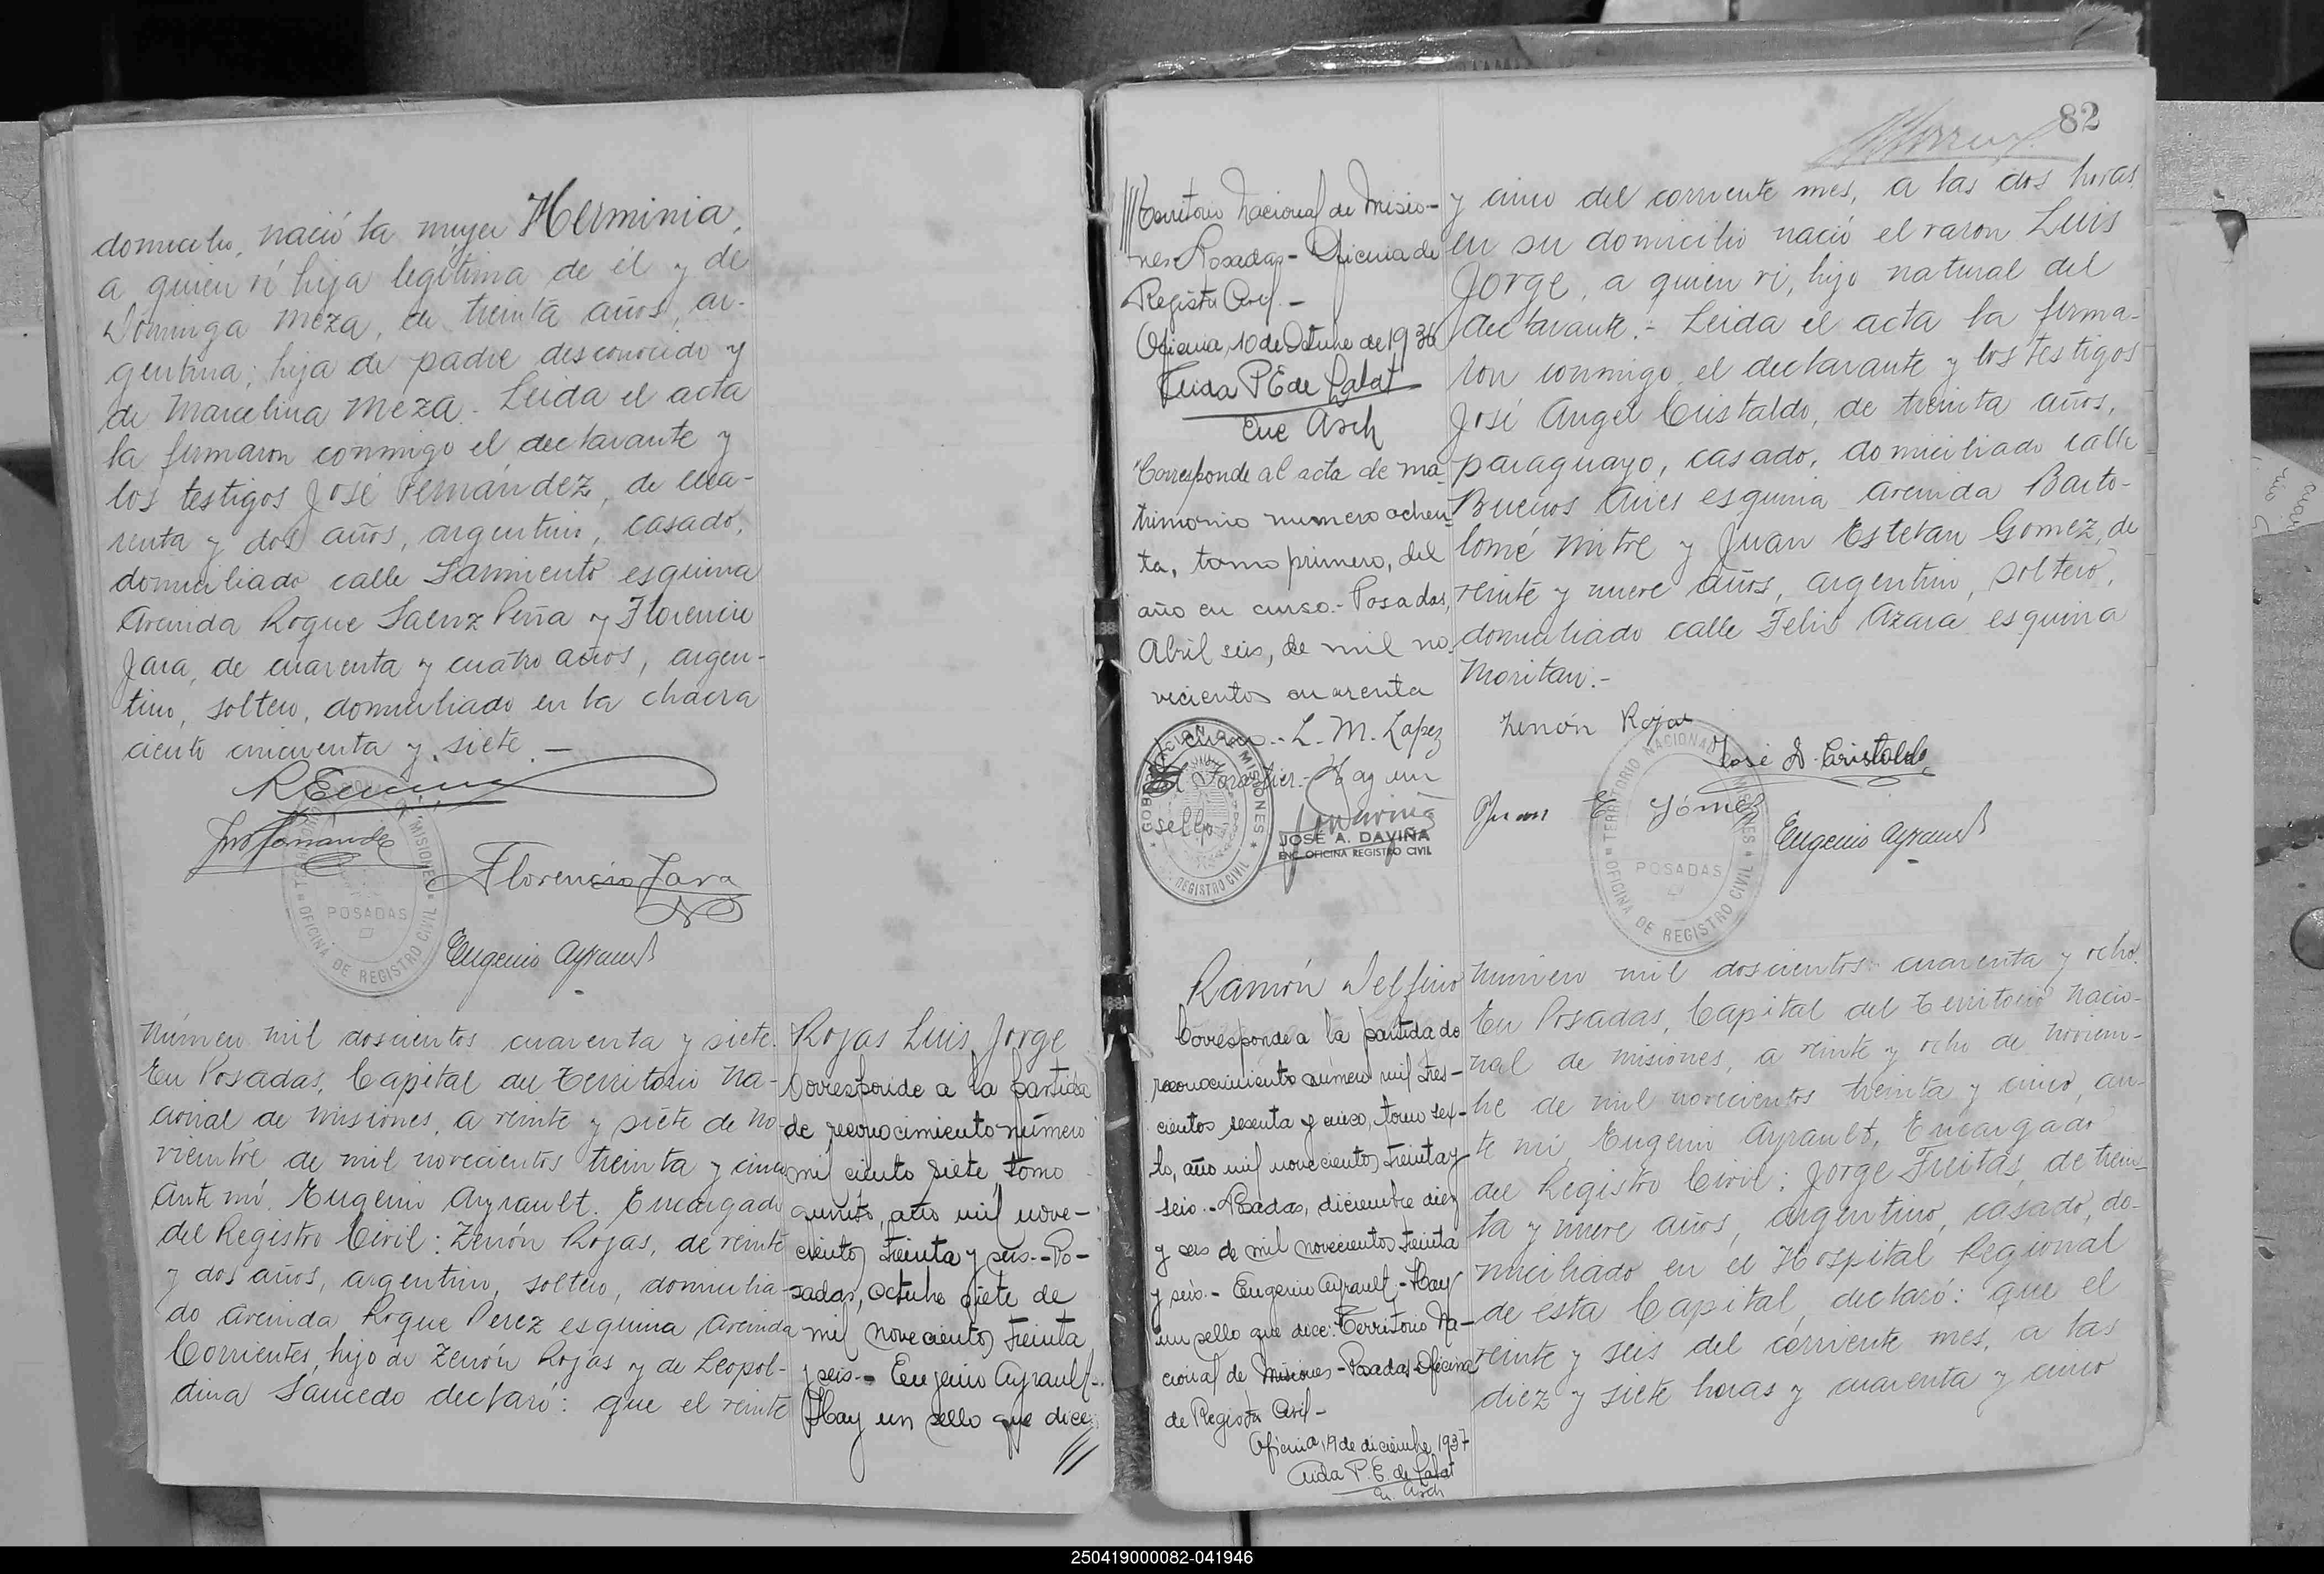 domicilio, nació la mujer Herminia,
a quien ví hija legítima de él y de
Dominga Meza, de treinta años, ar-
gentina; hija de padre desconocido y
de Marcelina Meza. Leida el acta
la firmaron conmigo el declarante y
los testigos José Fernández, de cua-
renta y dos años, argentino, casado,
domiciliado calle Sarmiento esquina
Avenida Roque Saenz Peña y Florencio
Jara, de cuarenta y cuatro años, argen-
tino, soltero, domiciliado en la chacra
ciento cincuenta y siete.—
Florencio Jara
POSADAS
OFICINA DE REGISTRO CIVIL
Eugenio Ayrault
Número mil doscientos cuarenta y siete.
En Posadas, Capital del Territorio Na-
cional de Misiones, a veinte y siete de No-
viembre de mil novecientos treinta y cinco
ante mí, Eugenio Ayrault, Encargado
del Registro Civil: Zenón Rojas, de veinte
y dos años, argentino, soltero, domicilia-
do Avenida Roque Perez esquina Avenida
Corrientes, hijo de Zenón Rojas y de Leopol-
dina Saucedo declaró: que el veinte
Rojas Luis Jorge
Corresponde a la partida
de reconocimiento número
mil ciento siete tomo
quinto, año mil nove-
cientos treinta y seis.-Po-
sadas, octubre siete de
mil novecientos treinta
y seis.- Eugenio Ayrault-.
Hay un sello que dice:
///
82
///Territorio Nacional de Misio-
nes-Posadas- Oficina de
Registro Civil.-
Oficina, 10 de Octubre de 1936
Aida P E de Labat
Enc Arch
Corresponde al acta de ma-
trimonio numero ochen-
ta, tomo primero, del
año en curso.- Posadas,
Abril seis, de mil no-
vecientos cuarenta
y cinco.- L. M. Lopez
Forastier.- Hay un
sello
GOBERNACION DE MISIONES
REGISTRO CIVIL
JOSÉ A. DAVIÑA
ENC. OFICINA REGISTRO CIVIL
y cinco del corriente mes, a las dos horas
en su domicilio nació el varon Luis
Jorge, a quien ví, hijo natural del
declarante.- Leida el acta la firma-
ron conmigo el declarante y los testigos
José Angel Cristaldo, de treinta años,
paraguayo, casado, domiciliado calle
Buenos Aires esquina Avenida Barto-
lomé Mitre y Juan Esteban Gomez, de
veinte y nueve años, argentino, soltero,
domiciliado calle Felix Azara esquina
Moritan.-
Zenón Rojas
José A. Cristaldo
Juan E Gómez
Eugenio Ayrault
TERRITORIO NACIONAL DE MISIONES
POSADAS
OFICINA DE REGISTRO CIVIL
Ramón Delfino
Corresponde a la partida de
reconocimiento número mil tres-
cientos sesenta y cinco, tomo sex-
to, año mil novecientos treinta y
seis.-Posadas, diciembre diez
y seis de mil novecientos treinta
y seis.- Eugenio Ayrault-Hay
un sello que dice: Territorio Na-
cional de Misiones-Posadas-Oficina
de Registro Civil-
Oficina, 19 de diciembre 1937
Aida P. E. de Labat
En. Arch
Número mil doscientos cuarenta y ocho.
En Posadas, Capital del Territorio Nacio-
nal de Misiones, a veinte y ocho de Noviem-
bre de mil novecientos treinta y cinco, an-
te mí, Eugenio Ayrault, Encargado
del Registro Civil: Jorge Freitas, de trein-
ta y nueve años, argentino, casado, do-
miciliado en el Hospital Regional
de ésta Capital, declaró: que el
veinte y seis del corriente mes, a las
diez y siete horas y cuarenta y cinco
250419000082-041946